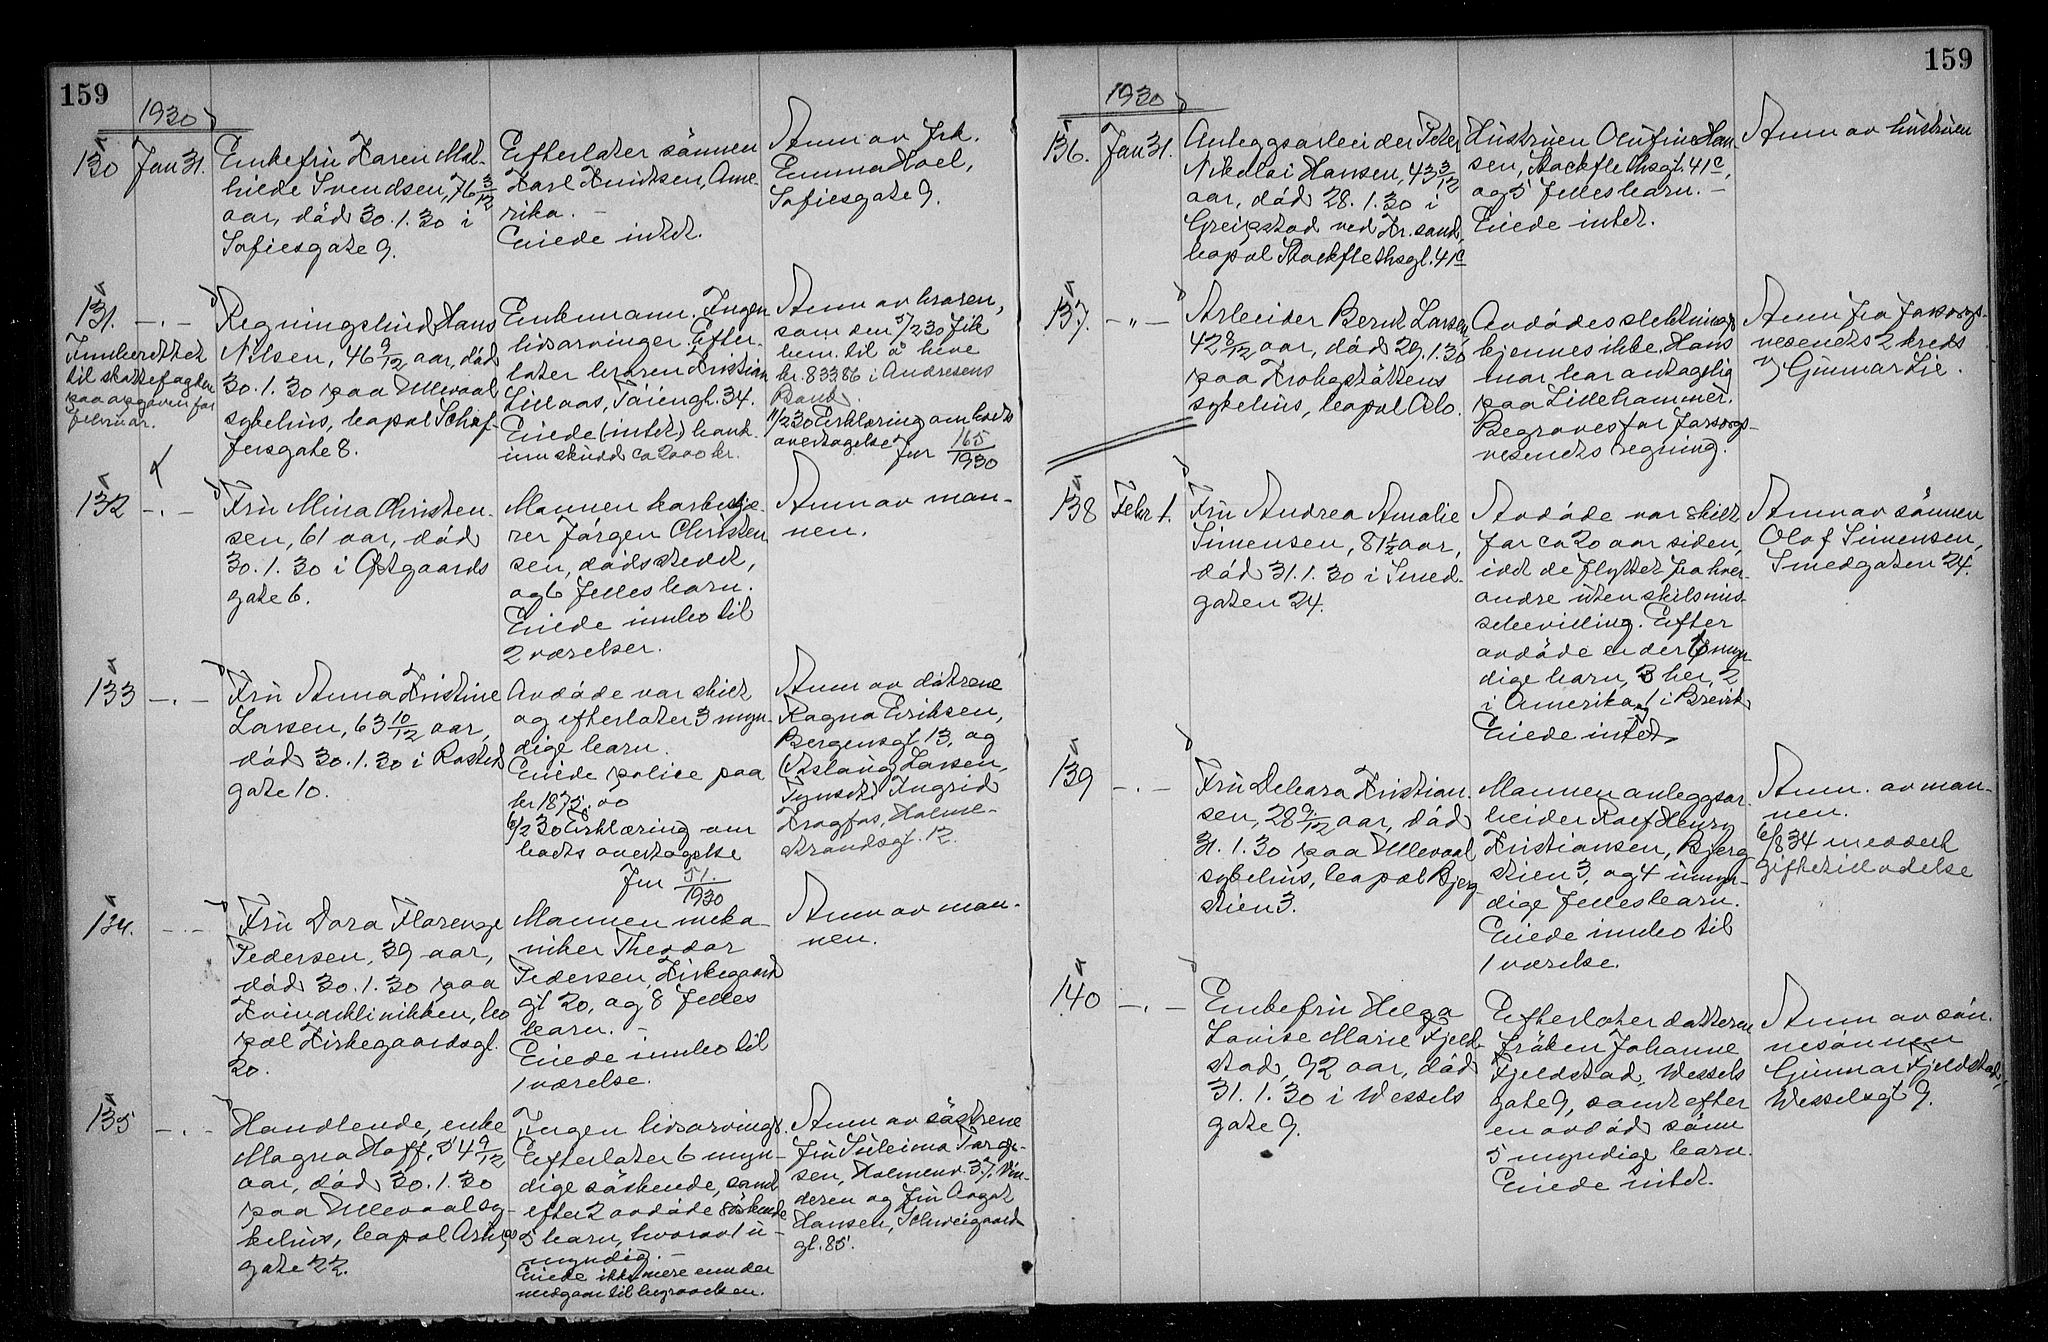 159
1930
130
Jan 31.
Enkefru Karen Mat-
hilde Svendsen, 76 3/12
aar, död 30.1.30 i
Sofiesgate 9.
Efterlater sönnen
Karl Knudtsen, Ame-
rika. –
Eiede intet.
Anm av frk.
Emma Hoel,
Sofiesgate 9.
131.
– . –
Innberettet
til skattefogden
paa opgaven for
februar.
Regningsbud Hans
Nilsen, 46 9/12 aar, död
30.1.30 paa Ullevaal
sykehus, bopæl Schaf-
fersgate 8.
Enkemann. Ingen
livsarvinger. Efter-
later broren Kristian
Lilleaas, Töiengt. 34.
Eiede (intet) bank-
innskudd ca 2000 kr.
Anm av broren,
som den 5/2 30 fik
bem. til å heve
kr. 833.86 i Andresens
Bank.
11/2 30 Erklæring om bodts
overtagelse Jnr 165/1930
132
– . –
Fru Mina Christen-
sen, 61 aar, död
30.1.30 i Östgaards
gate 6.
Mannen karbeskjæ-
rer Jörgen Christen-
sen, dödsstedet,
og 6 fellesbarn.
Eiede innbo til
2 værelser.
Anm av man-
nen.
133
– . –
Fru Anna Kristine
Larsen, 63 10/12 aar,
död 30.1.30 i Rosted
gate 10.
Avdöde var skilt
og efterlater 3 myn-
dige barn.
Eiede police paa
kr 1875.00
6/2 30 Erklæring om
boets overtagelse
Jnr 51./1930
Anm av dötrene
Ragna Eriksen,
Bergensgt. 13, og
(Aslaug Larsen,
Tynset) Ingrid
Kragfos, Holme-
strandsgt. 12.
134.
– . –
Fru Dora Florenge
Pedersen, 39 aar,
död 30.1.30 paa
Kvindeklinikken, bo-
pæl Kirkegaardsgt.
20.
Mannen meka-
niker Theodor
Pedersen, Kirkegaard
gt 20, og 8 felles
barn. –
Eiede innbo til
1 værelse.
Anm av man-
nen.
135
– . –
Handlende, enke
Magna Hoff, 54 9/12
aar, död 30.1.30
paa Ullevaal sy-
kehus, bopæl Arups
gate 22.
Ingen livsarving.
Efterlater 6 myn-
dige söskende, samt
efter 2 avdöde söskende
5 barn, hvorav 1 u-
myndig. –
Eiede ikke mere enn der
medgaar til begravelsen.
Anm av söstrene
fru Suleima Torger-
sen, Holmenv. 37, Vin-
deren og fru Aagot
Hansen, Schweigaards
gt. 85.
159
1930
136.
Jan 31.
Anleggsarbeider Peter
Nikolai Hansen, 43 3/12
aar, död 28.1.30 i
Greipstad ved Kr.sand,
bopæl Stockflethsgt. 41c
Hustruen Olufine Han-
sen, Stockflethsgt. 41c,
og 5 fellesbarn. –
Eiede intet.
Anm av hustruen
137.
– " –
Arbeider Bernt Larsen
42 8/12 aar, död 29.1.30
paa Krohgstöttens
sykehus, bopæl Oslo.
Avdödes slektninger
kjennes ikke. Hans
mor bor antagelig
paa Lillehammer.
Begraves for Forsorgs-
vesendts regning.
Anm fra Forsorgs-
vesendts 2 kreds
v/ Gunnar Lie.
138
Febr 1.
Fru Andrea Amalie
Simensen, 81 1/2 aar,
död 31.1.30 i Smed-
gaten 24.
Avdöde var skilt
for ca 20 aar siden,
idet de flyttet fra hver-
andre uten skilsmis-
sebevilling. Efter
avdöde er der 6 myn-
dige barn, 3 her, 2
i Amerika og 1 i Brevik
Eiede intet.
Anm av sönnen
Olaf Simensen,
Smedgaten 24.
139
– . –
Fru Debora Kristian-
sen, 28 9/12 aar, död
31.1.30 paa Ullevaal
sykehus, bopæl Bjerg-
stien 3.
Mannen anleggsar-
beider Rolf Henry
Kristiansen, Bjerg-
stien 3, og 4 umyn-
dige fellesbarn.
Eiede innbo til
1 værelse.
Anm. av man-
nen.
6/8 34 meddelt
giftetilladelse
140
– . –
Enkefru Helga
Lovise Marie Fjeld-
stad, 92 aar, död
31.1.30 i Wessels
gate 9.
Efterlater datteren
fröken Johanne
Fjeldstad, Wessels
gate 9, samt efter
en avdöd sönn
5 myndige barn.
Eiede intet.
Anm av sön-
nesönnen
Gunnar Fjeldstad,
Wesselsgt 9.